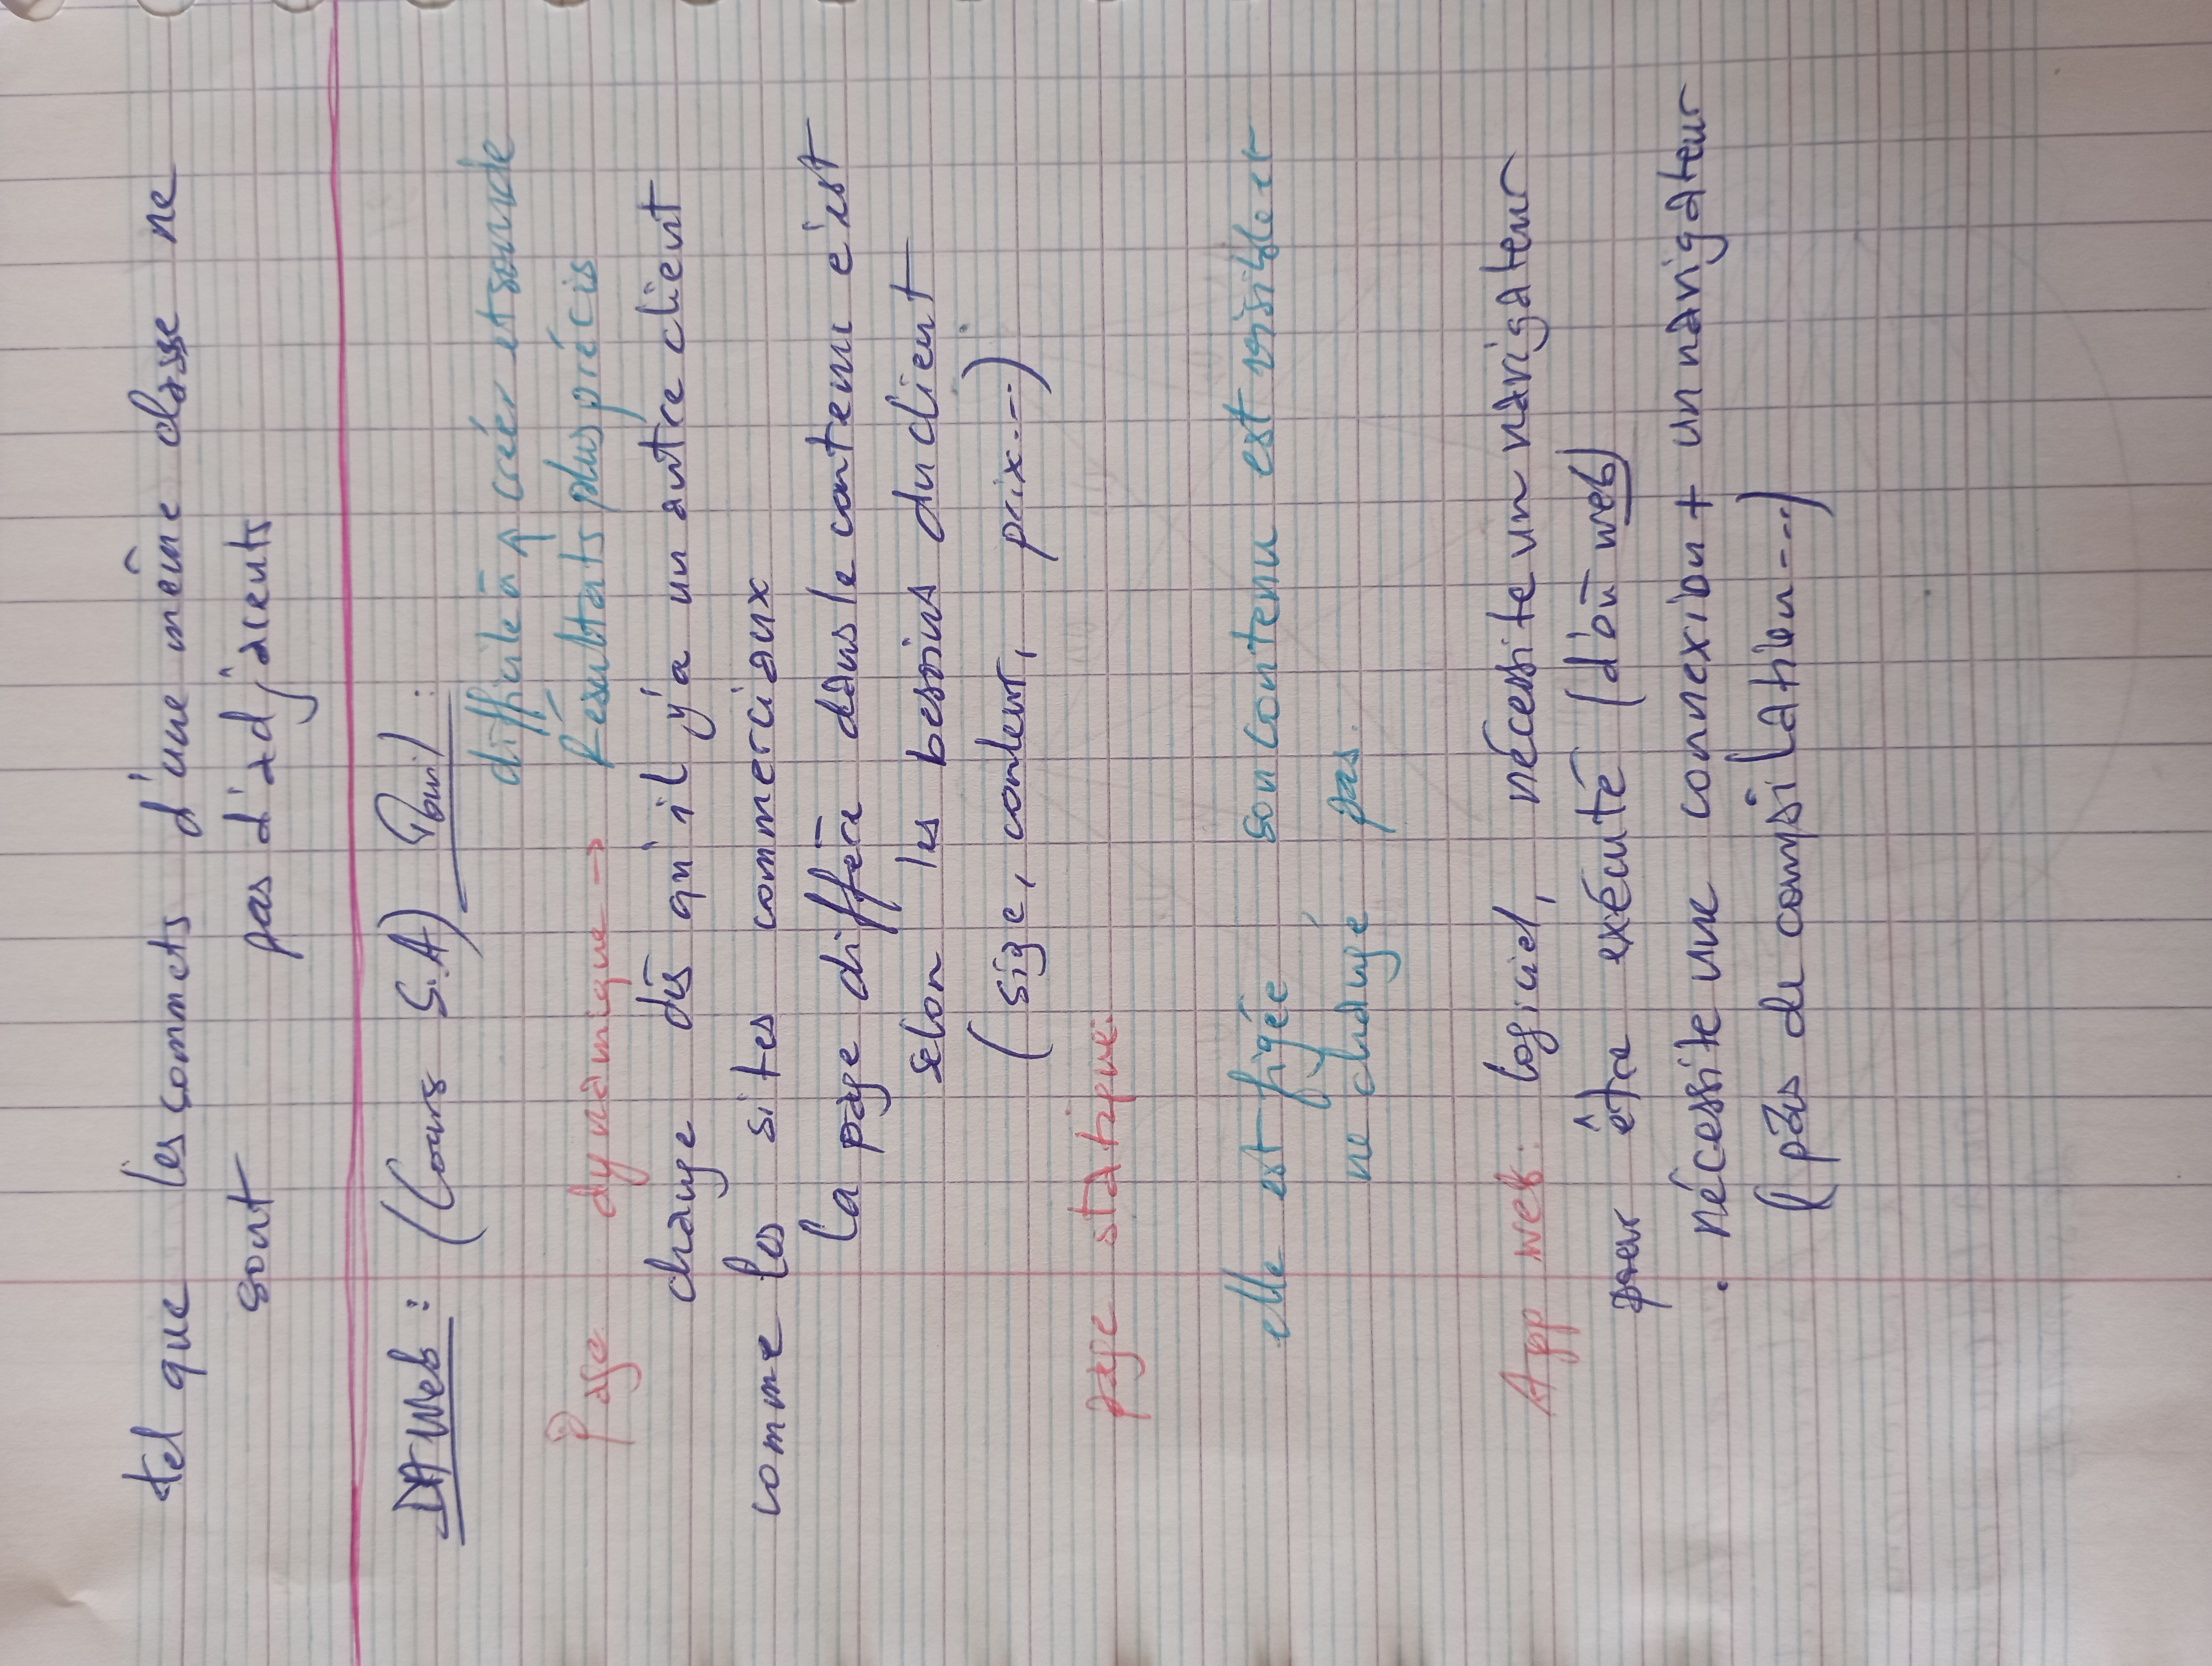 tel que les sommets d'une même classe ne
sont pas d'adjacents
DAWeb : (Cours S.A)
difficile à créer et
Page dynamique → Résultats plus précis
change dès qu'il y'a un autre client
comme les sites commerciaux
la page diffère dans le contenu c'est
selon les besoins du client
(size, couleur, prix...)
page statique:
elle est figée son contenu est visible et
ne change pas.
App web: logiciel, nécessite un navigateur
pour être exécuté (d'où web)
. nécessite une connexion + un navigateur
(pas de compilation...)